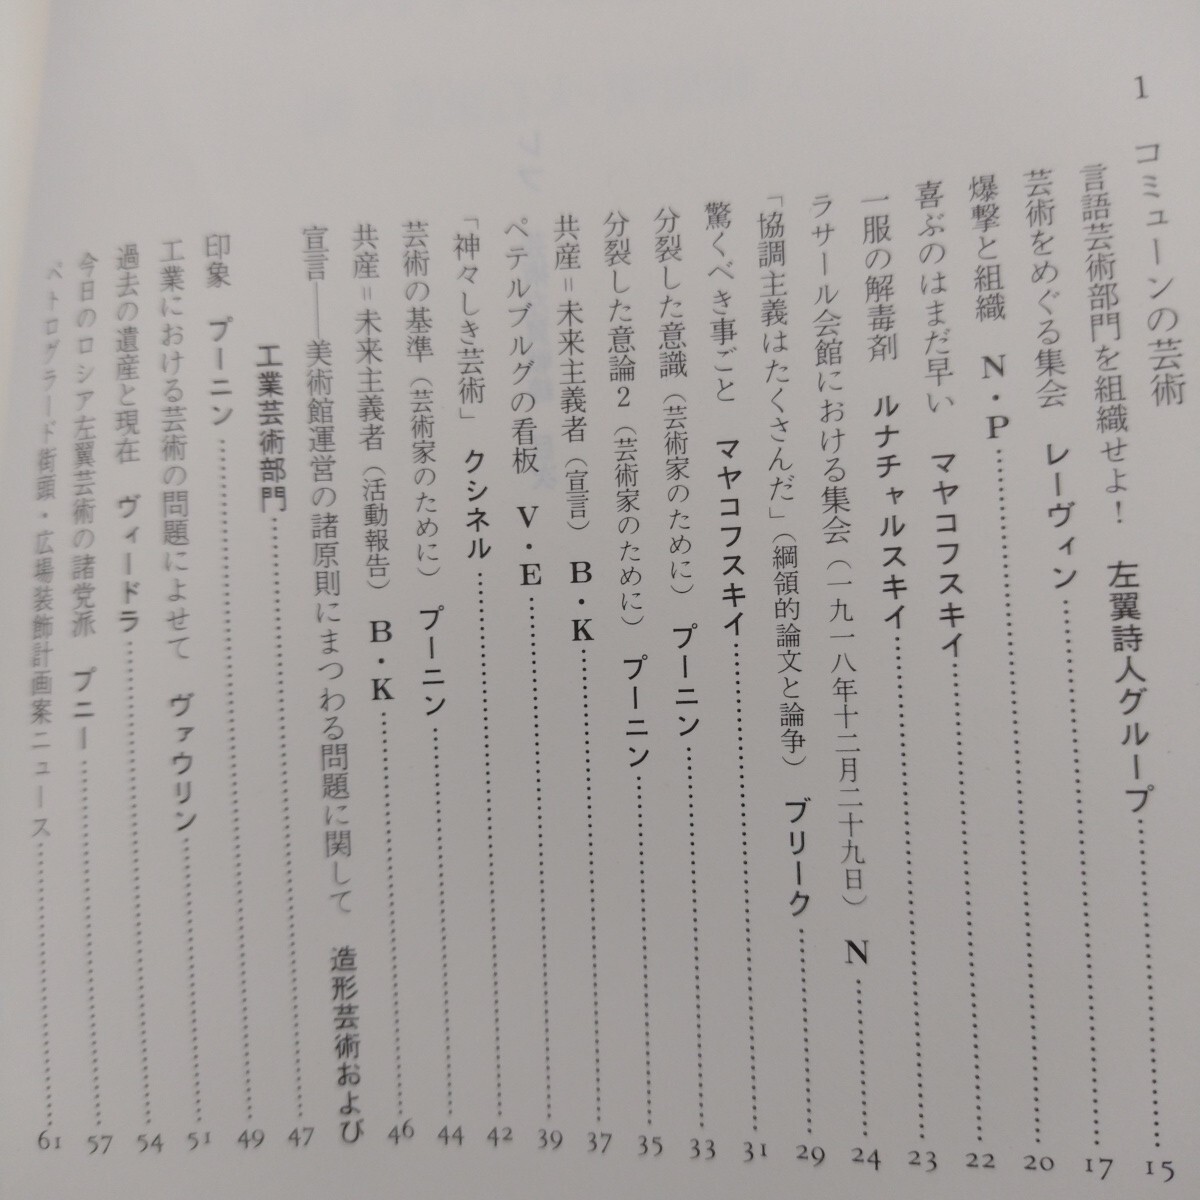 1 コミューンの芸術
言語芸術部門を組織せよ! 左翼詩人グループ……15
芸術をめぐる集会 レーヴィン……17
爆撃と組織 N・P……20
喜ぶのはまだ早い マヤコフスキイ……22
一服の解毒剤 ルナチャルスキイ……23
ラサール会館における集会(一九一八年十二月二十九日) N……24
「協調主義はたくさんだ」(綱領的論文と論争) ブリーク……29
驚くべき事ごと マヤコフスキイ……31
分裂した意識(芸術家のために) プーニン……33
分裂した意論2(芸術家のために) プーニン……35
共産=未来主義者(宣言) B・K……37
ペテルブルグの看板 V・E……39
「神々しき芸術」 クシネル……42
芸術の基準(芸術家のために) プーニン……44
共産=未来主義者(活動報告) B・K……46
宣言——美術館運営の諸原則にまつわる問題に関して 造形芸術および
工業芸術部門……47
印象 プーニン……49
工業における芸術の問題によせて ヴァウリン……51
過去の遺産と現在 ヴィードラ……54
今日のロシア左翼芸術の諸党派 プニー……57
ペトログラード街頭・広場装飾計画案ニュース……61